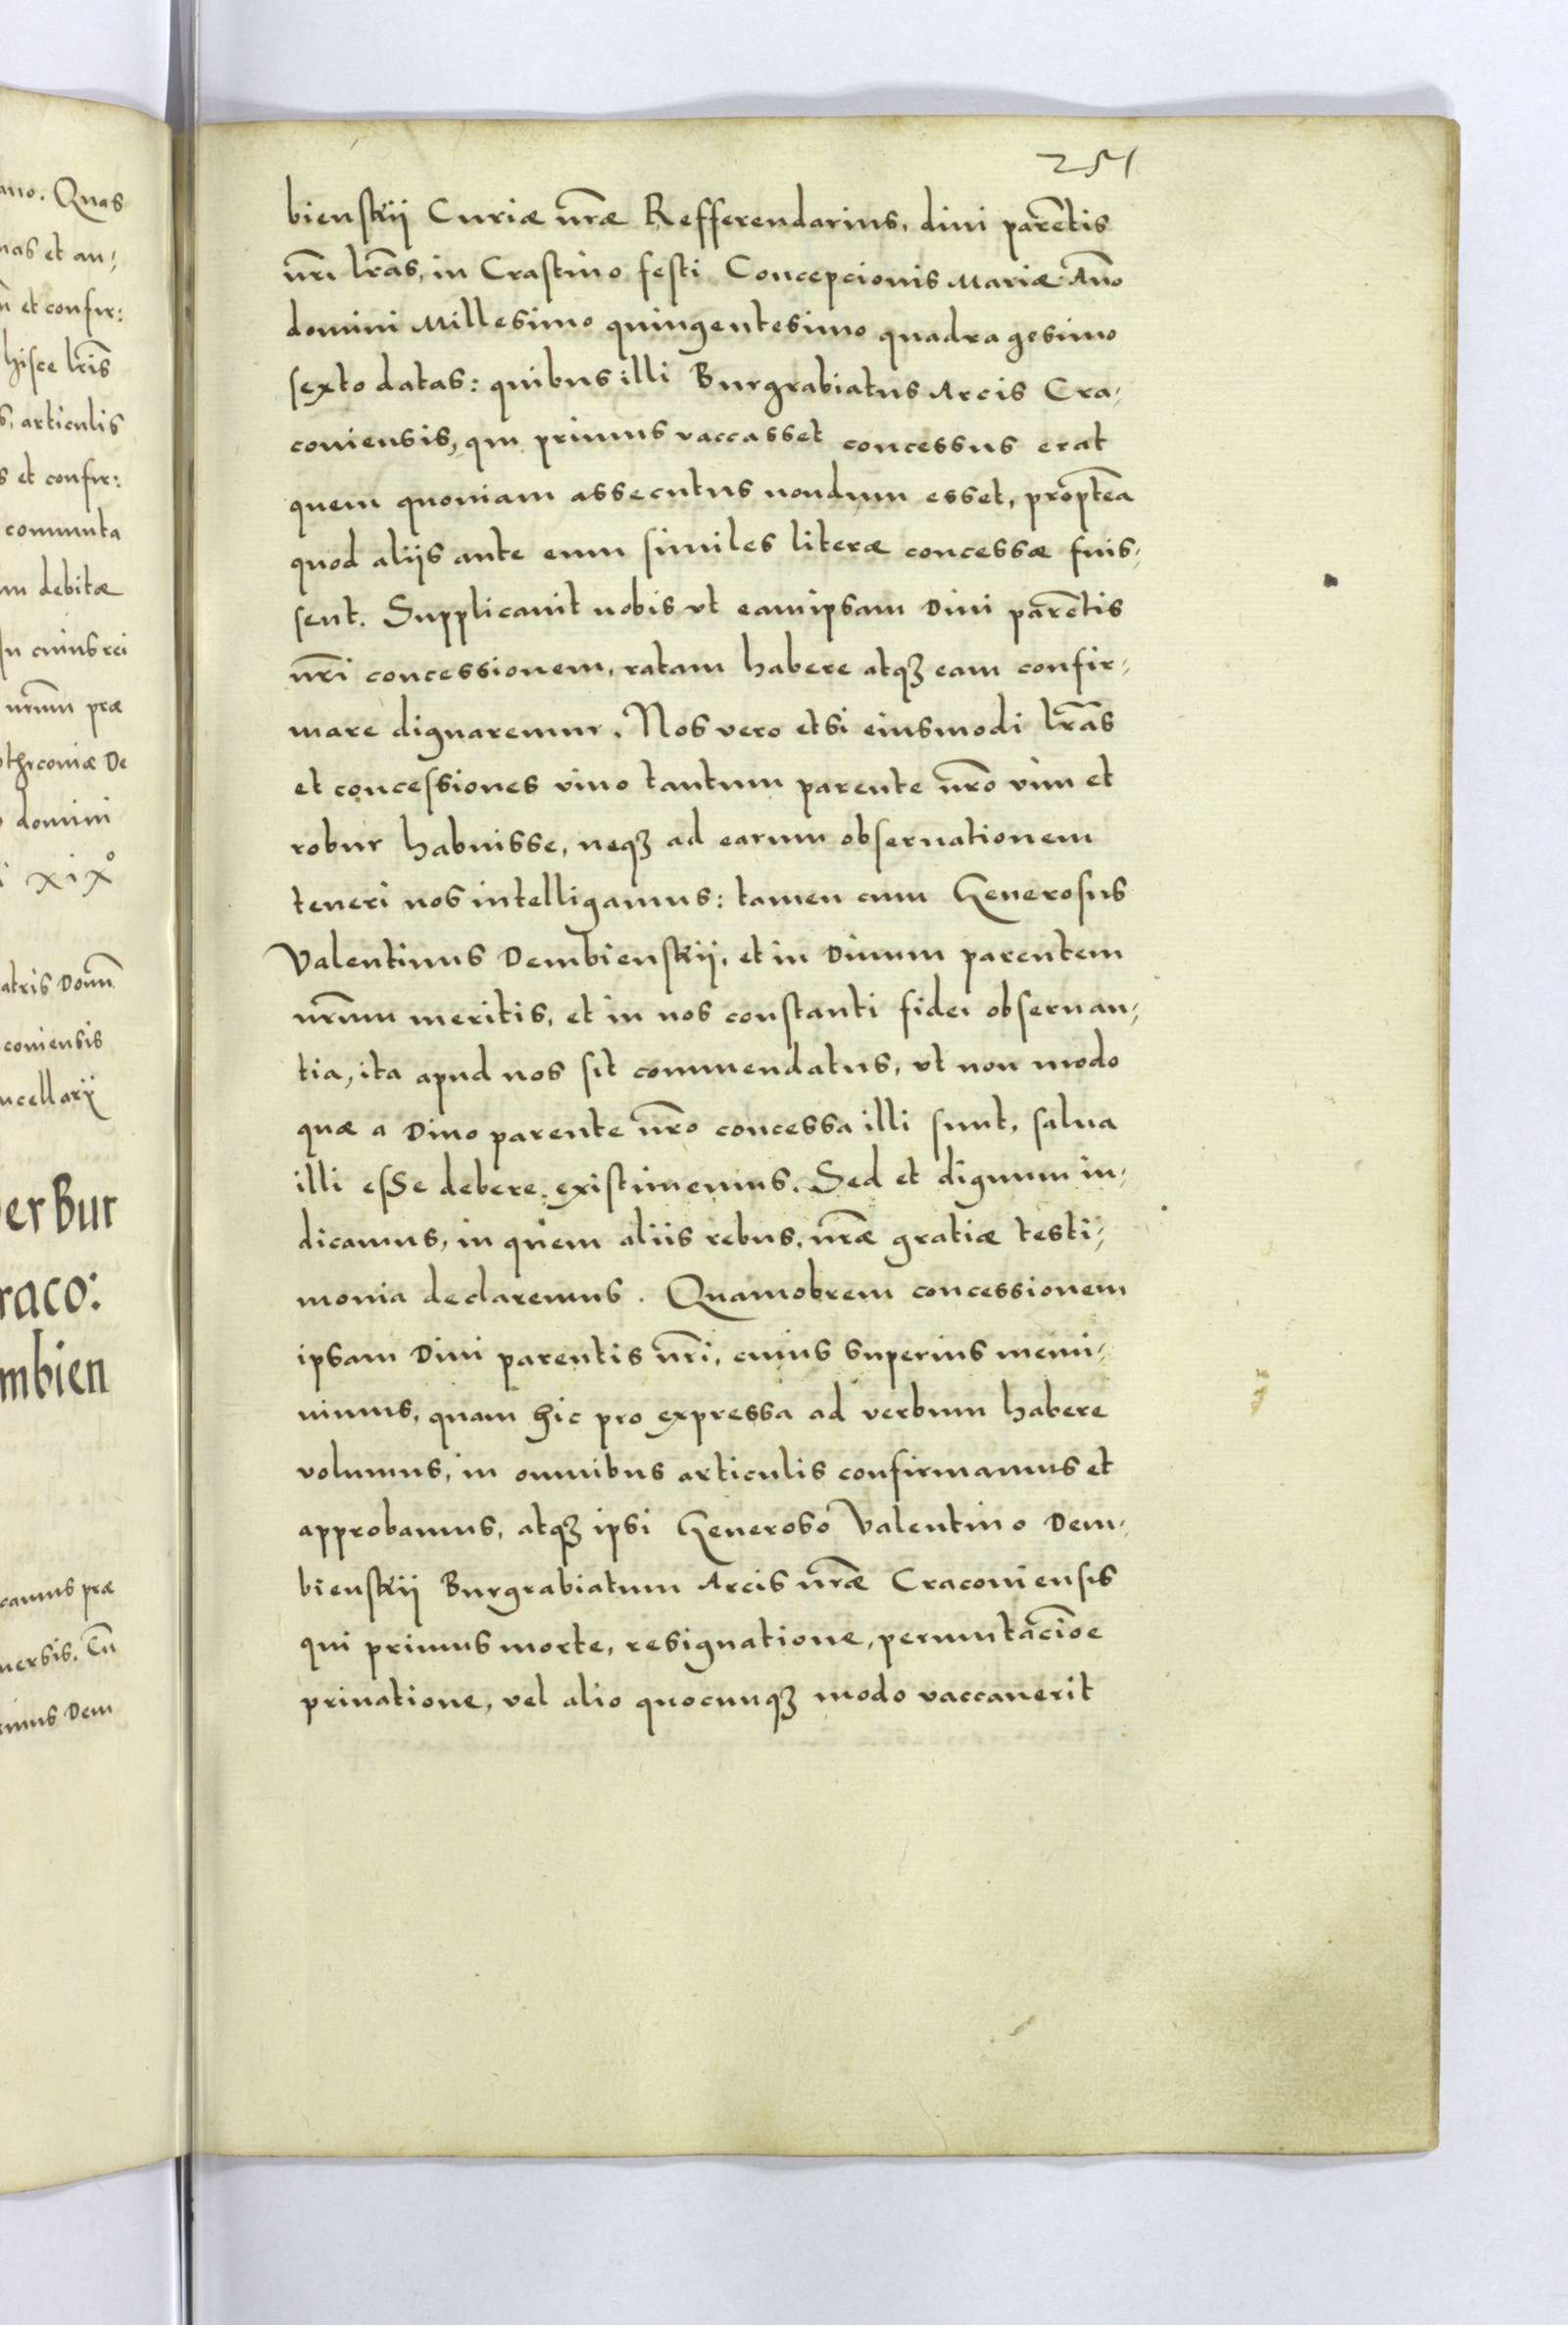 ano. Quas
nas et an,
et confir:
hisce lr̃is
s, articulis
s et confir:
commuta
m debitæ
In cuius rei
nr̃um præ
othrconiæ De
domini
xix°
atris Domñ
coviensis
ncellarÿ
er Bur
raco:
mbien
camus præ
uersis. Cũ
inus Dem
251
bienskij Curiæ nr̃æ Refferendarius, diui parẽtis
nr̃i lr̃as, in Crastino festi Concepcionis Mariæ Añno
domini Millesimo quingentesimo quadragesimo
sexto datas: quibus illi Burgrabiatus Arcis Cra,
couiensis, qui primus vaccasset concessus erat
quem quoniam assecutus nondum esset, propt̃ea
quod alijs ante eum similes literæ concessæ fuis,
sent. Supplicauit nobis vt eamipsam Diui parẽtis
nr̃i concessionem, ratam habere atqꝫ eam confir,
mare dignaremur. Nos vero etsi eiusmodi lr̃as
et concessiones viuo tantum parente nr̃o vim et
robur habuisse, neqꝫ ad earum obseruationem
teneri nos intelligamus: tamen cum Generosus
Valentinus Dembienskij, et in Diuum parentem
nr̃um meritis, et in nos constanti fidei obseruan,
tia, ita apud nos sit commendatus, vt non modo
quæ a Diuo parente nr̃o concessa illi sunt, salua
illi esse debere existimemus. Sed et dignum iu,
dicamus, in quem aliis rebus, nr̃æ gratiæ testi,
monia declaremus. Quamobrem concessionem
ipsam Diui parentis nr̃i, cuius superius memi,
nimus, quam hic pro expressa ad verbum habere
volumus, in omnibus articulis confirmamus et
approbamus, atqꝫ ipsi Generoso Valentino Dem,
bienskij Burgrabiatum Arcis nr̃æ Cracouiensis
qui primus morte, resignatione, permutac̃ioe
priuatione, vel alio quocunqꝫ modo vaccauerit